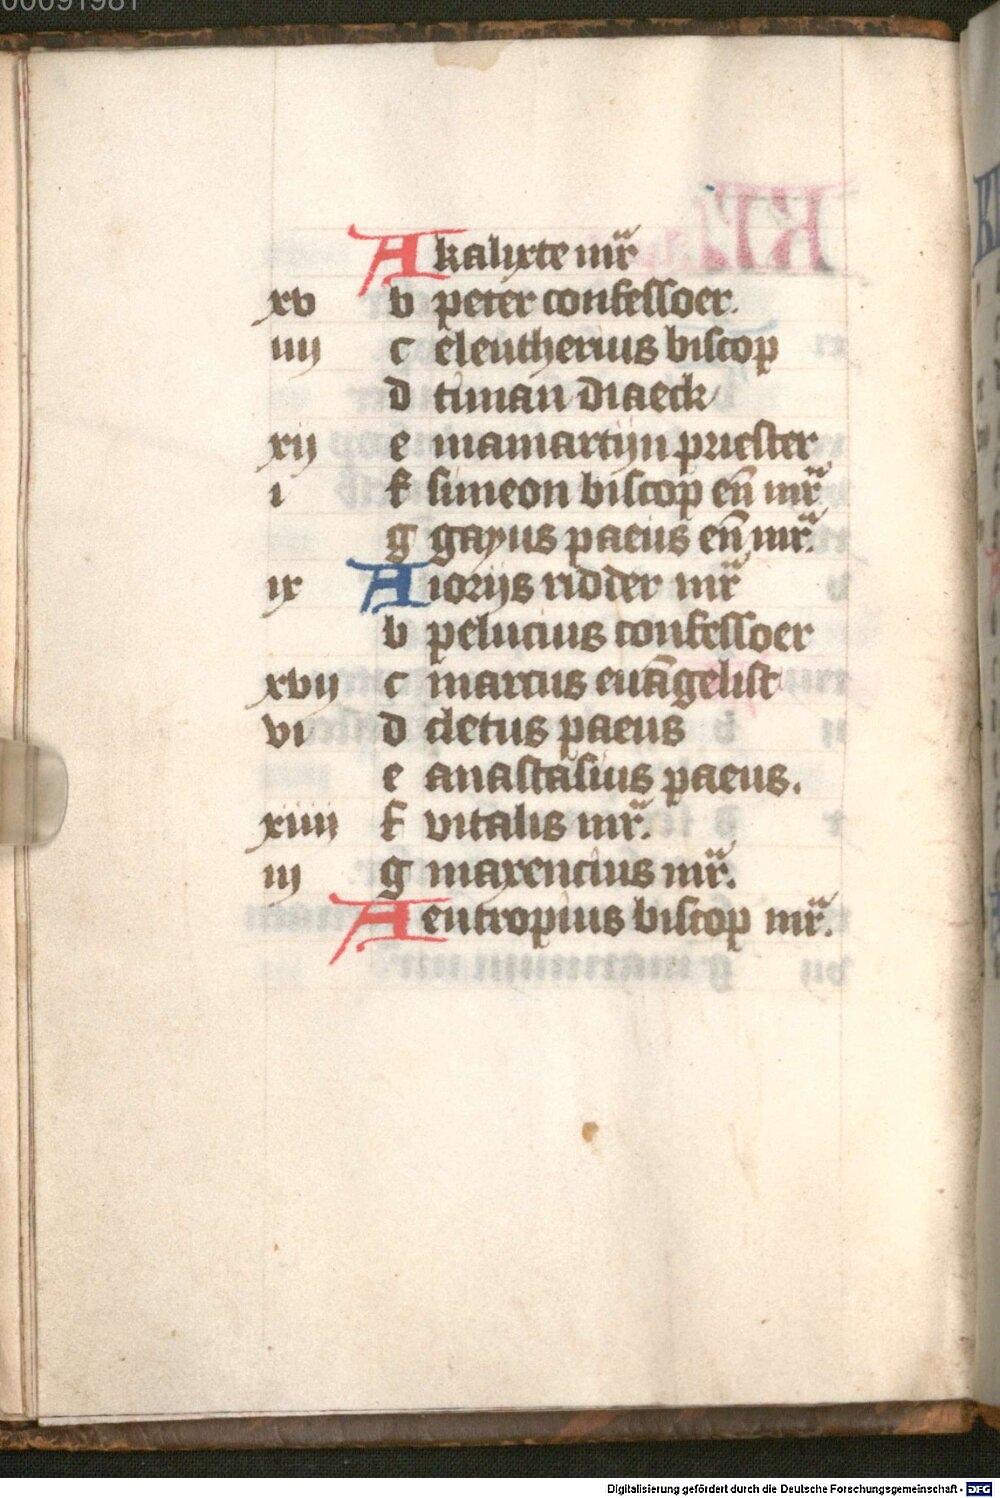 00091981
A kalixte mr̄
xv b peter confessoer.
iiij c eleutherius biscop
d timan diaeck
xij e mamartijn priester
i f simeon biscop en̄ mr̄
g gayus paeus en̄ mr̄.
ix A iorijs ridder mr̄
b pelucius confessoer
xvij c marcus euāgelist
vi d cletus paeus
e anastasius paeus.
xiiij f vitalis mr̄.
iij g maxencius mr̄.
A eutropius biscop mr̄.
Digitalisierung gefördert durch die Deutsche Forschungsgemeinschaft - DFG